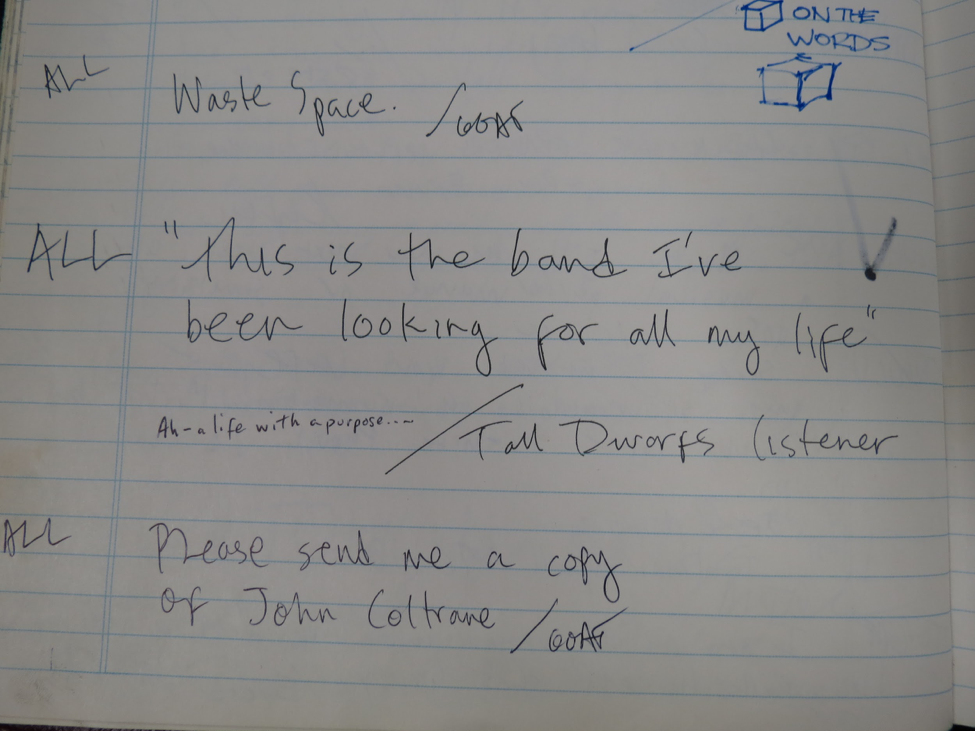 ON THE
WORDS
ALL Waste Space. /GOAT
ALL "This is the band I've
been looking for all my life"
Ah-a life with a purpose... / Tall Dwarfs listener
ALL Please send me a copy
of John Coltrane /GOAT